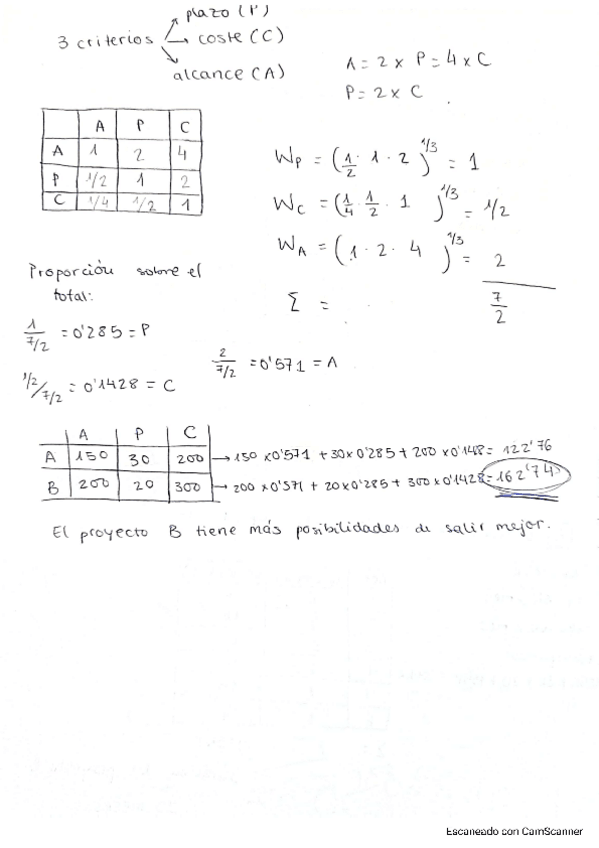 plazo (P)
3 criterios → coste (C)
alcance (A)
A = 2 x P = 4 x C
P = 2 x C
A P C
A 1 2 4
P 1/2 1 2
C 1/4 1/2 1
W_P = (1/2 · 1 · 2)^1/3 = 1
W_C = (1/4 · 1/2 · 1)^1/3 = 1/2
W_A = (1 · 2 · 4)^1/3 = 2
Σ = 7/2
Proporción sobre el
total:
1/7/2 = 0'285 = P
2/7/2 = 0'571 = A
1/2/7/2 = 0'1428 = C
A P C
A 150 30 200 → 150 x 0'571 + 30 x 0'285 + 200 x 0'148 = 122'76
B 200 20 300 → 200 x 0'571 + 20 x 0'285 + 300 x 0'1428 = 162'74
El proyecto B tiene más posibilidades de salir mejor.
Escaneado con CamScanner